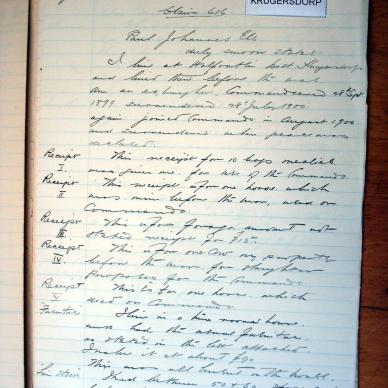 KRUGERSDORP
Claim 616
Paul Johannes Els
duly sworn states
I live at Kalfontein Dist Krugersdorp
and lived there before the war
Am an exburgher, Commandeered 28th Sept
1899 surrendered 28 July 1900
again joined Commando in August 1900
and surrendered when peace was
declared.
Receipt I. This receipt for 10 bags mealies
was given me for use of the Commando.
Receipt II This receipt is for one horse, which
was mine before the war, used on
Commando.
Receipt III This is for forage amount not
stated receipt for £15.
Receipt IV. This is for one Cow my property
before the war for slaughter
purposes for the Commando.
Receipt V This is for one horse, which
died on Commando.
Furniture I live in a nine roomed house.
and had the usual furniture.
as stated in the list attached.
I make it at about £90.
This was all burnt in the house.
I had between 50 & 60